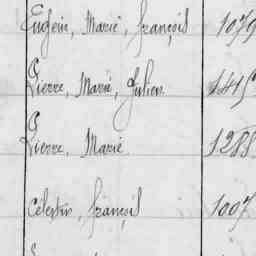 Eugène, Marie, françois 1079
Pierre, Marie, Julien 1415
Pierre, Marie 1288
Célestin, françois 1007